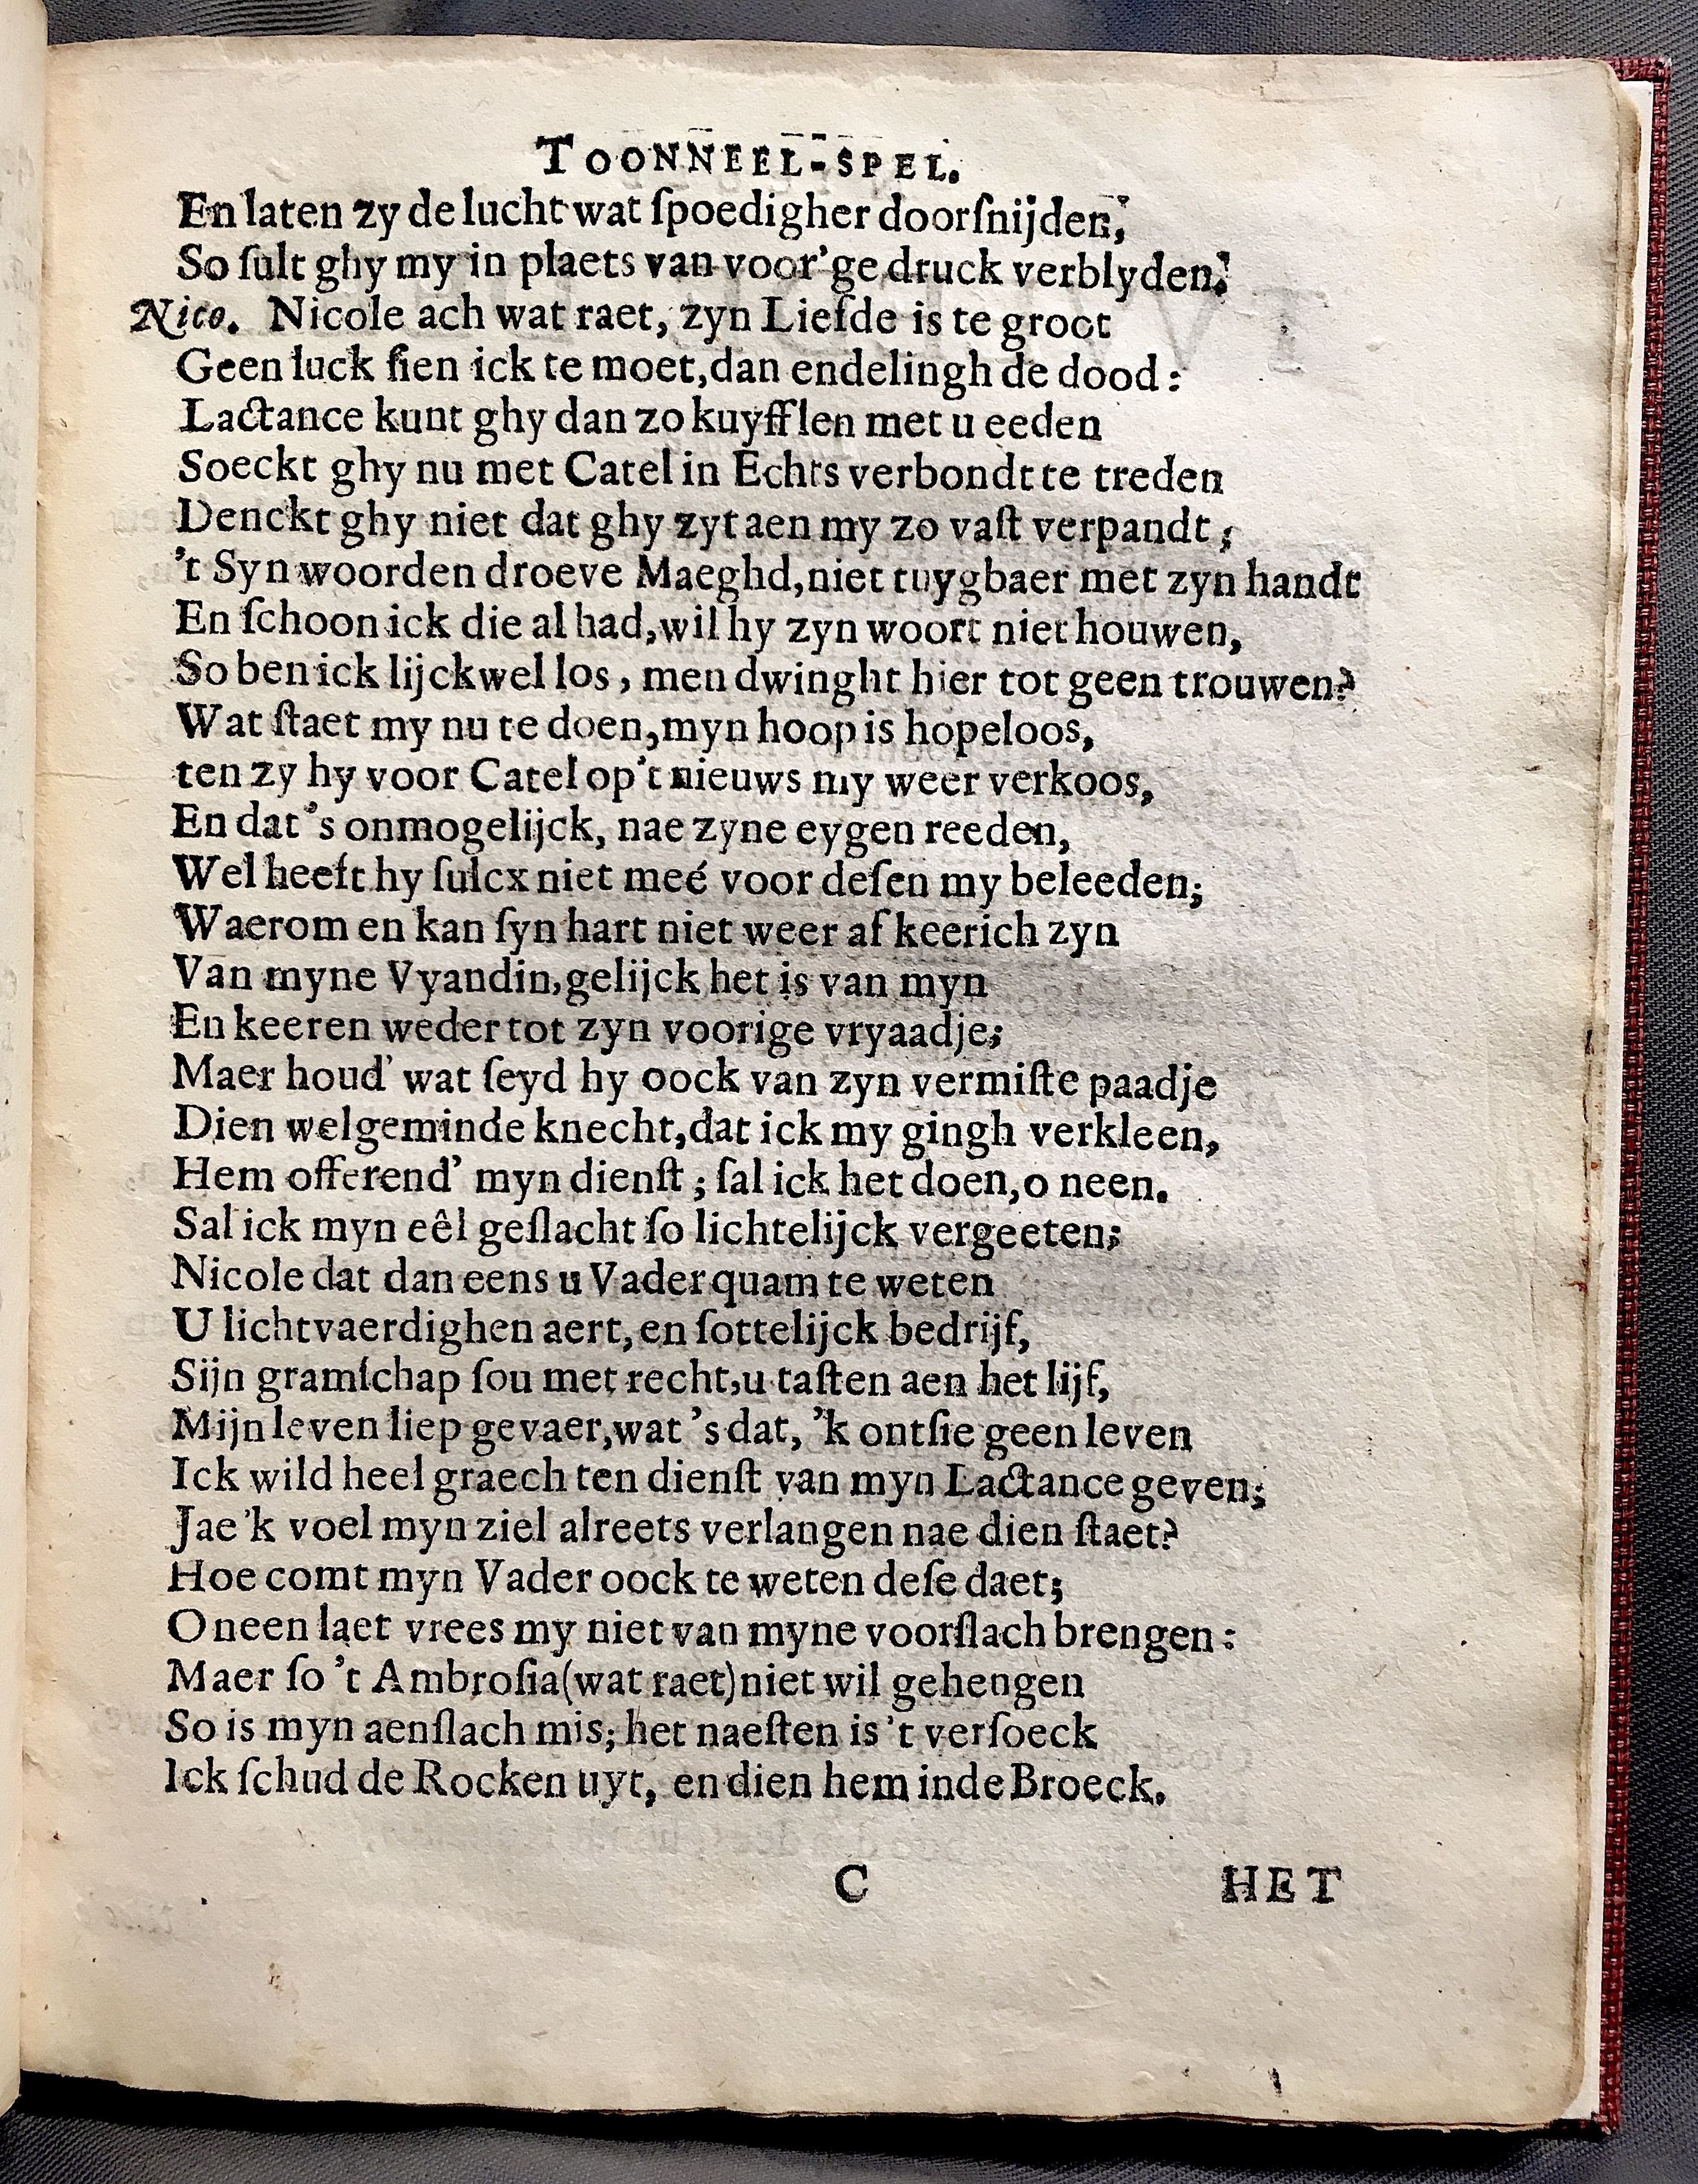 TOONNEEL-SPEL.
En laten zy de lucht wat ſpoedigher doorſnijden,
So ſult ghy my in plaets van voor'ge druck verblyden.
Nico. Nicole ach wat raet, zyn Liefde is te groot
Geen luck ſien ick te moet, dan endelingh de dood:
Lactance kunt ghy dan zo kuyfflen met u eeden
Soeckt ghy nu met Catel in Echts verbondt te treden
Denckt ghy niet dat ghy zyt aen my zo vaſt verpandt;
't Syn woorden droeve Maeghd, niet tuygbaer met zyn handt
En ſchoon ick die al had, wil hy zyn woort niet houwen,
So ben ick lijckwel los, men dwinght hier tot geen trouwen?
Wat ſtaet my nu te doen, myn hoop is hopeloos,
ten zy hy voor Catel op't nieuws my weer verkoos,
En dat 's onmogelijck, nae zyne eygen reeden,
Wel heeft hy ſulcx niet meé voor deſen my beleeden;
Waerom en kan ſyn hart niet weer af keerich zyn
Van myne Vyandin, gelijck het is van myn
En keeren weder tot zyn voorige vryaadje;
Maer houd' wat ſeyd hy oock van zyn vermiſte paadje
Dien welgeminde knecht, dat ick my gingh verkleen,
Hem offerend' myn dienſt; ſal ick het doen, o neen.
Sal ick myn eêl geſlacht ſo lichtelijck vergeeten;
Nicole dat dan eens u Vader quam te weten
U lichtvaerdighen aert, en ſottelijck bedrijf,
Sijn gramſchap ſou met recht, u taſten aen het lijf,
Mijn leven liep gevaer, wat 's dat, 'k ontſie geen leven
Ick wild heel graech ten dienſt van myn Lactance geven;
Jae 'k voel myn ziel alreets verlangen nae dien ſtaet?
Hoe comt myn Vader oock te weten deſe daet;
O neen laet vrees my niet van myne voorſlach brengen:
Maer ſo 't Ambroſia (wat raet) niet wil gehengen
So is myn aenſlach mis; het naeſten is 't verſoeck
Ick ſchud de Rocken uyt, en dien hem inde Broeck.
C HET